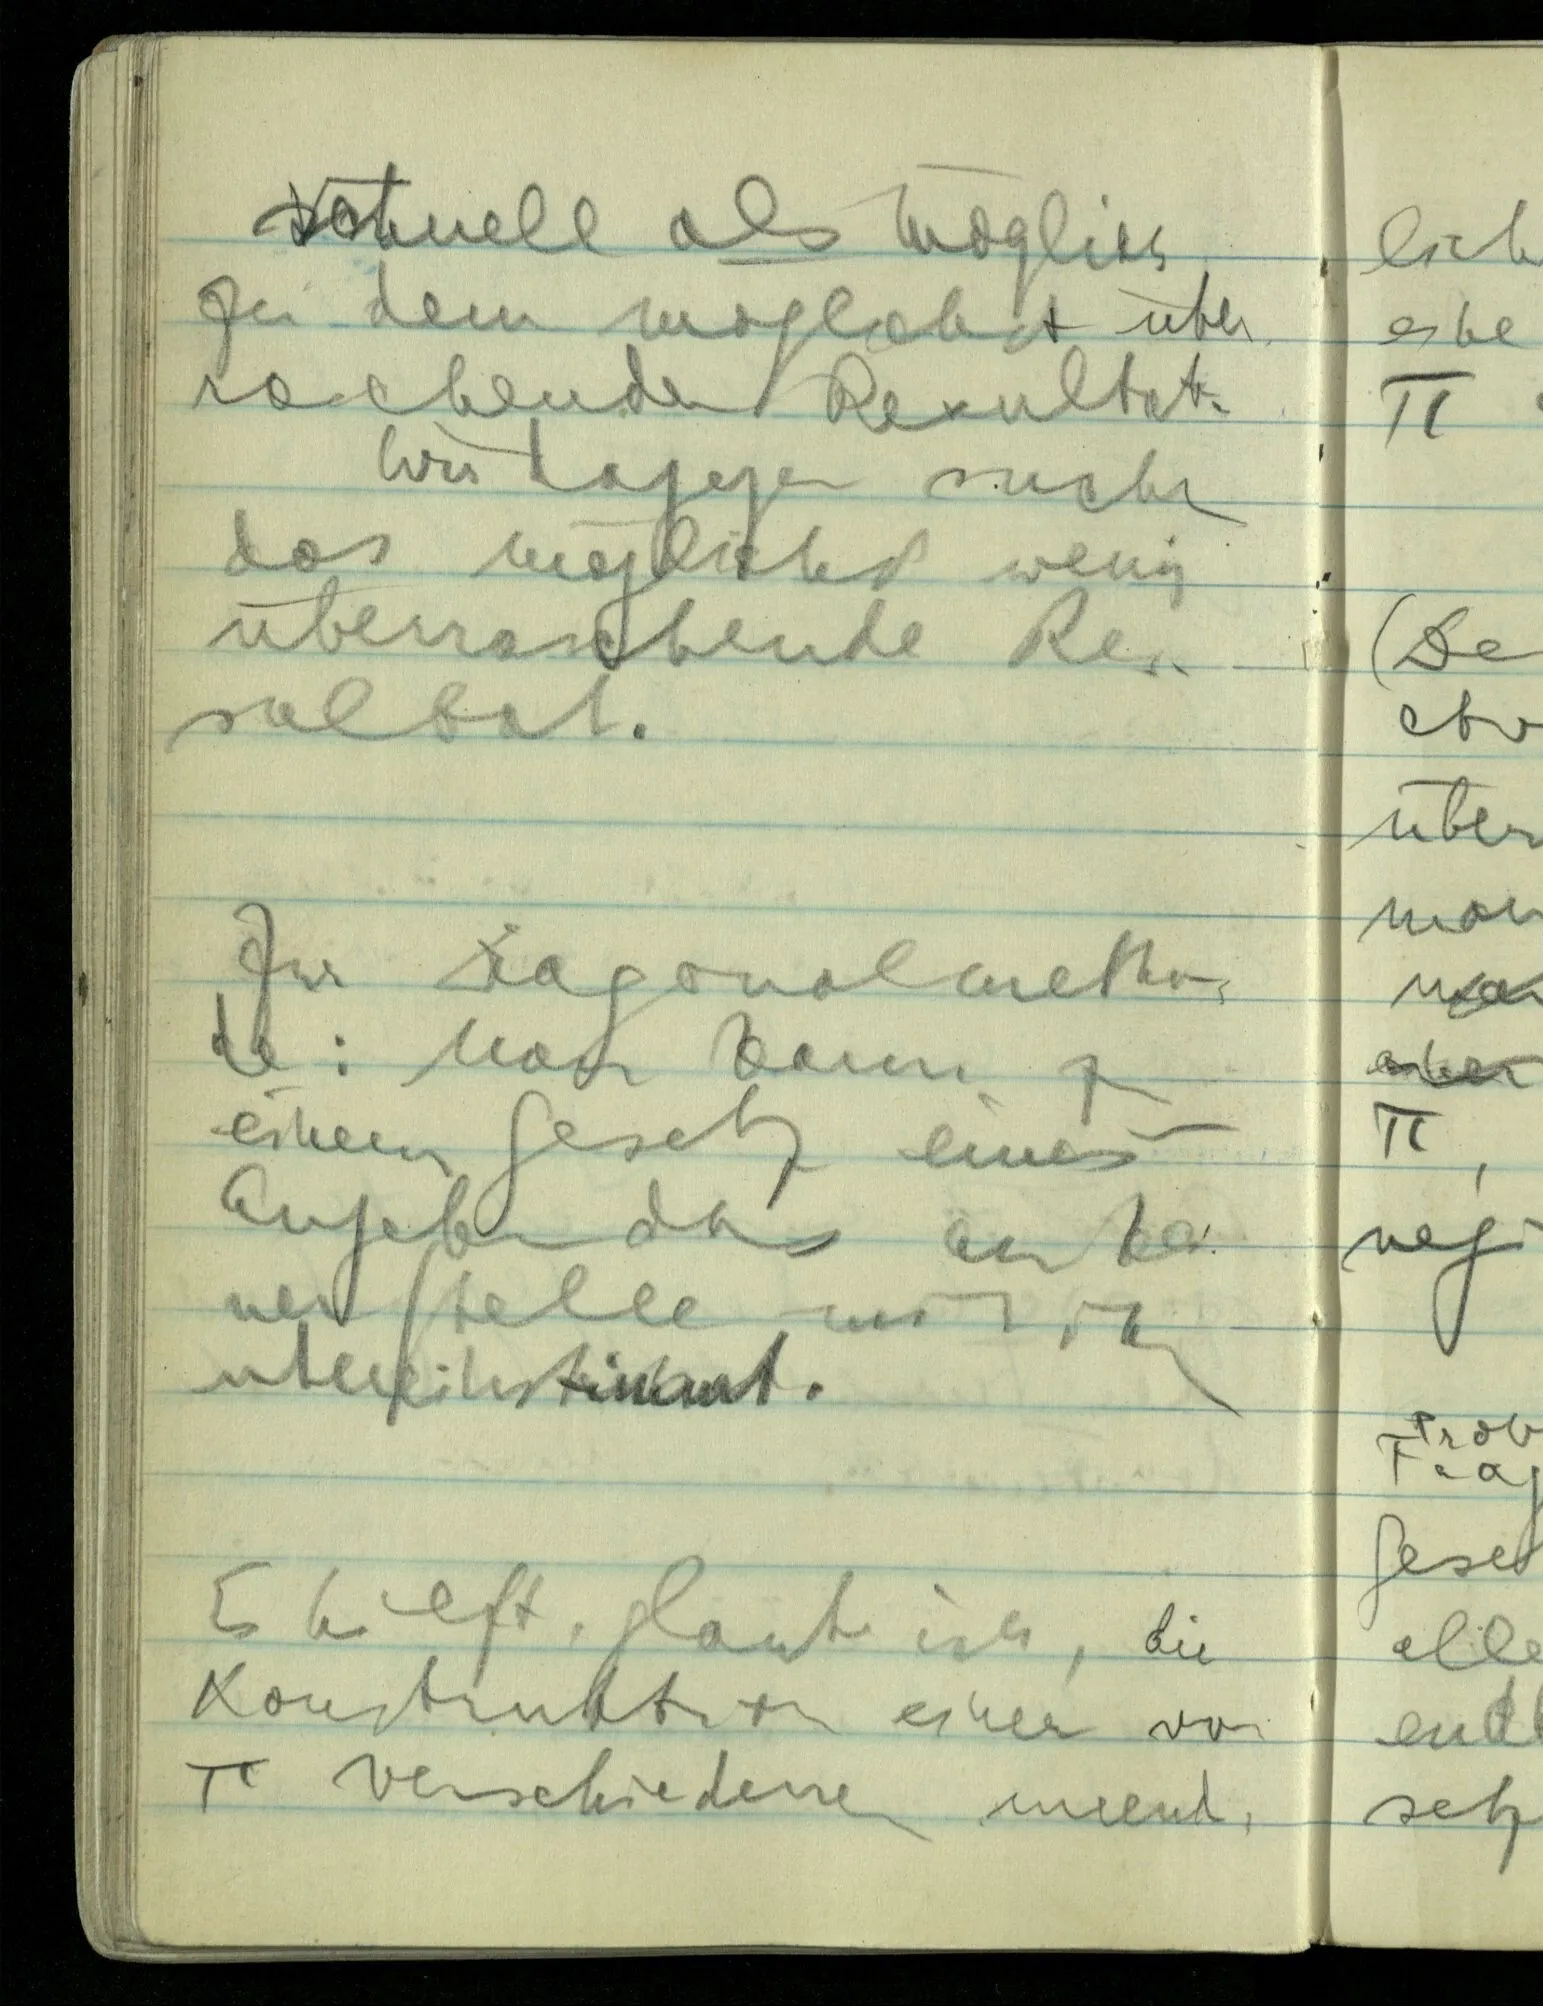 schnell als möglich
zu dem möglichst über,
raschenden Resultat.
Wir dagegen suchen
das möglichst wenig
überraschende Re-
sultat.
Zur Diagonalmetho,
de: Man kann zu
einem Gesetz eines
angeben das an kei
ner Stelle mit ihm
übereinstimmt.
Es hilft, glaube ich, die
Konstruktion einer von
π verschiedenen unend,
lich
π
(De
etw
über
man
π,
negi
Prob
Frag
Geset
alle
endl
setz